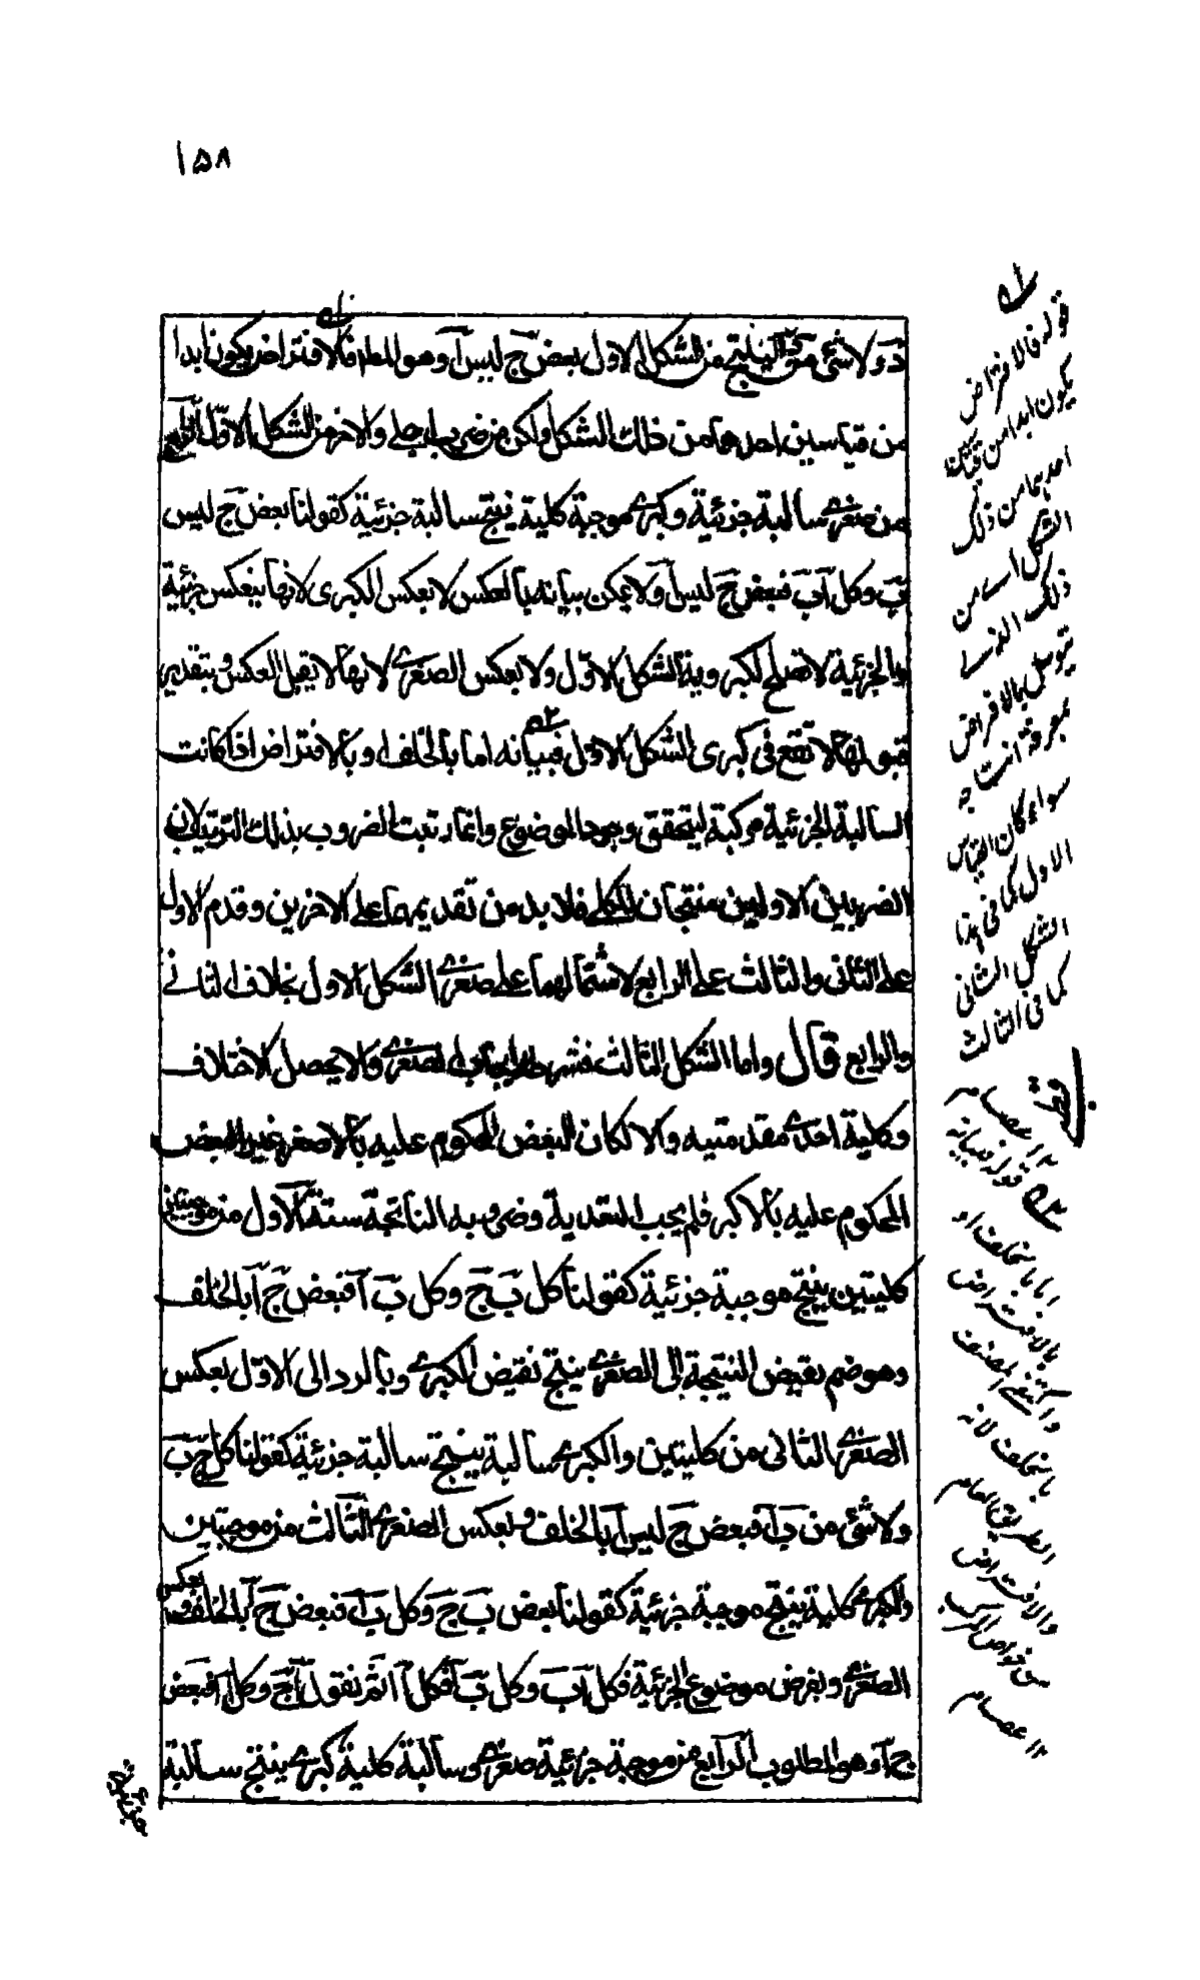 ١٥٨
دَ ولا شئ من دَ آ لينتج من الشكل الاول بعض جَ ليس آ وهو المط فالافتراض يكون ابدا
من قياسين احدهما من ذلك الشكل ولكن من ضرب اجلى والاخر من الشكل الاول الرابع
من صغرى سالبة جزئية وكبرى موجبة كلية ينتج سالبة جزئية كقولنا بعض جَ ليس
بَ وكل آ بَ فبعض جَ ليس آ ولا يمكن بيانه بالعكس لا بعكس الكبرى لانها ينعكس جزئية
والجزئية لا تصلح لكبروية الشكل الاوّل ولا بعكس الصغرى لانها لا يقبل العكس وبتقدير
قبولها لا تقع فى كبرى الشكل الاوّل فبيانه اما بالخلف او بالافتراض اذا كانت
السالبة الجزئية مركبة ليتحقق وجود الموضوع وانما رتبت الضروب بذلك الترتيب لان
الضربين الاوليين منتجان للكلى فلا بد من تقديمهما على الاخرين وقدم الاول
على الثانى والثالث على الرابع لاشتمالهما على صغرى الشكل الاول بخلاف الثانى
والرابع قال واما الشكل الثالث فشرطه ايجاب الصغرى والا يحصل الاختلاف
وكلية احدى مقدمتيه والا لكان البعض المحكوم عليه بالاصغر غير البعض
المحكوم عليه بالاكبر فلم يجب التعدية وضروبه الناتجة ستة الآول من موجبتين
كليتين ينتج موجبة جزئية كقولنا كل بَ جَ وكل بَ آ فبعض جَ آ بالخلف
وهو ضم نقيض النتيجة الى الصغرى ينتج نقيض الكبرى وبالرد الى الاوّل بعكس
الصغرى الثانى من كليتين والكبرى سالبة ينتج سالبة جزئية كقولنا كل جَ بَ
ولا شئ من بَ آ فبعض جَ ليس آ بالخلف وبعكس الصغرى الثالث من موجبتين
والكبرى كلية ينتج موجبة جزئية كقولنا بعض بَ جَ وكل بَ آ فبعض جَ آ بالخلف وبعكس
الصغرى وبفرض موضوع الجزئية فكل بَ وكل بَ آ فكل آ ثم نقول جَ وكل آ فبعض
جَ آ وهو المطلوب الرابع من موجبة جزئية صغرى وسالبة كلية كبرى ينتج سالبة
قوله فالافتراض
يكون ابدا من قياسين
احدهما من ذلك
الشكل اے من
ذلك الذى
يتوسل بالافتراض
بمعرفة انتاجه
سواء كان القياس
الاول كما فى هذا
الشكل الثانى
كما فى الثالث
١٢ عصام
قوله فبيانه
اما بالخلف او
بالافتراض
واكتفى المصنف
بالخلف لانه
الطريق العام
والافتراض
من خواص المركب
١٢ عصام